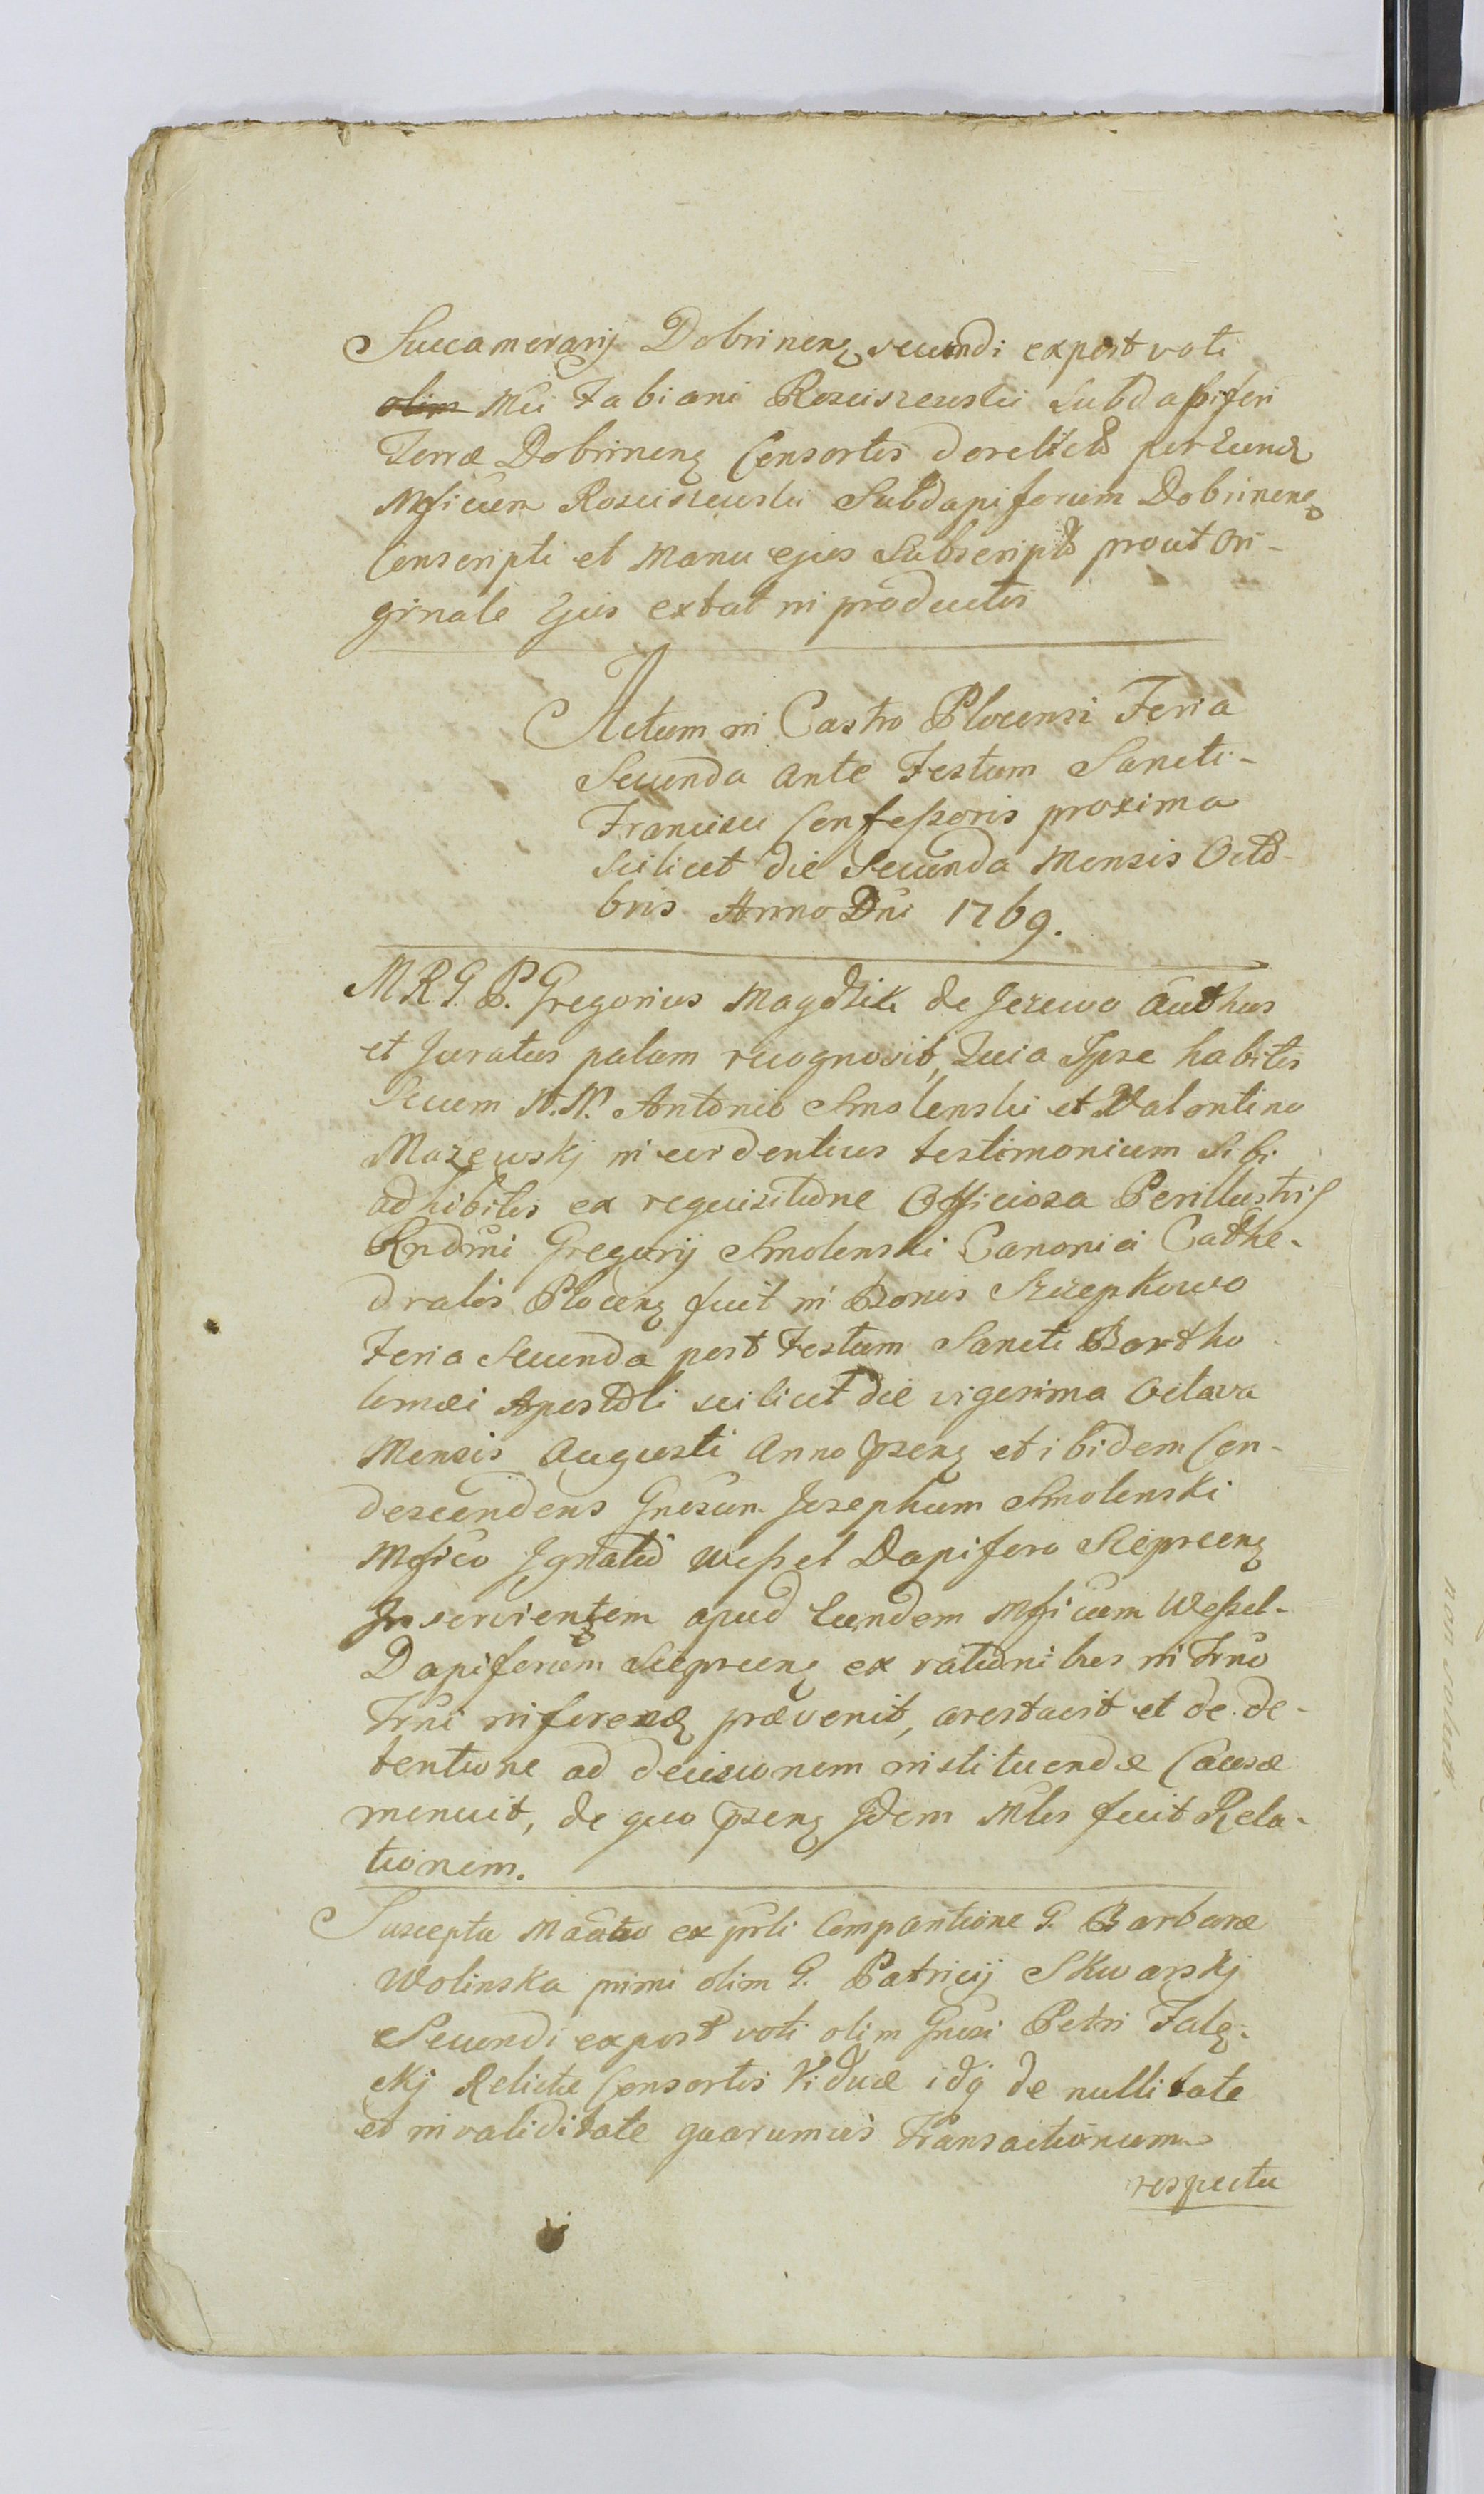 Succamerarij Dobrinenȝ secundi expost voti
olim Mci Fabiani Rosciszewski Subdapiferi
Terræ Dobrinenȝ Consortis derelictæ per Eundȝ
Mficum Rosciszewski Subdapiferum Dobrinenȝ
Conscripti et Manu ejus Subscripti prout Ori-
ginale Ejus extat in productis
Actum in Castro Plocensi Feria
Secunda ante Festum Sancti
Francisci Confessoris proxima
scilicet die Secunda Mensis Octo-
bris Anno Dni 1769.
M R G. P. Gregorius Magdzik de Jezewo Authus
et Juratus palam recognovit, Quia Ipse habitis
Secum N. N. Antonio Smolenski et Valentino
Mazewskj in evidentius testimonium Sibi
adhibitis ex requisitione Officiosa Perillustris
Rndmi Gregorij Smolenski Canonici Cathe-
dralis Plocenȝ fuit in Bonis Szczepkowo
Feria Secunda post Festum Sancti Bartho
lomæi Apostoli scilicet die vigesima Octava
Mensis Augusti Anno psenȝ et ibidem Con-
descendens Gnosum Josephum Smolenski
Mfico Ignatio Wessel Dapifero Sieprcenȝ
Inservientem apud Eundem Mficum Wessel
Dapiferum Sieprcenȝ ex rationibus in Trno
Trni inferendȝ prævenit, arestavit et de de-
tentione ad decisionem instituendæ Causæ
monuit, de quo psenȝ Idem Mlis fecit Rela-
tionem.
Suscepta Maãto ex psli Comparitione G. Barbaræ
Wolinska primi olim G. Patricij Skwarskj
Secundi expost voti olim Gnosi Petri Falę-
ckj Relictæ Consortis Viduæ idq de nullitate
et invaliditate quarumvis Transactionum
respectu